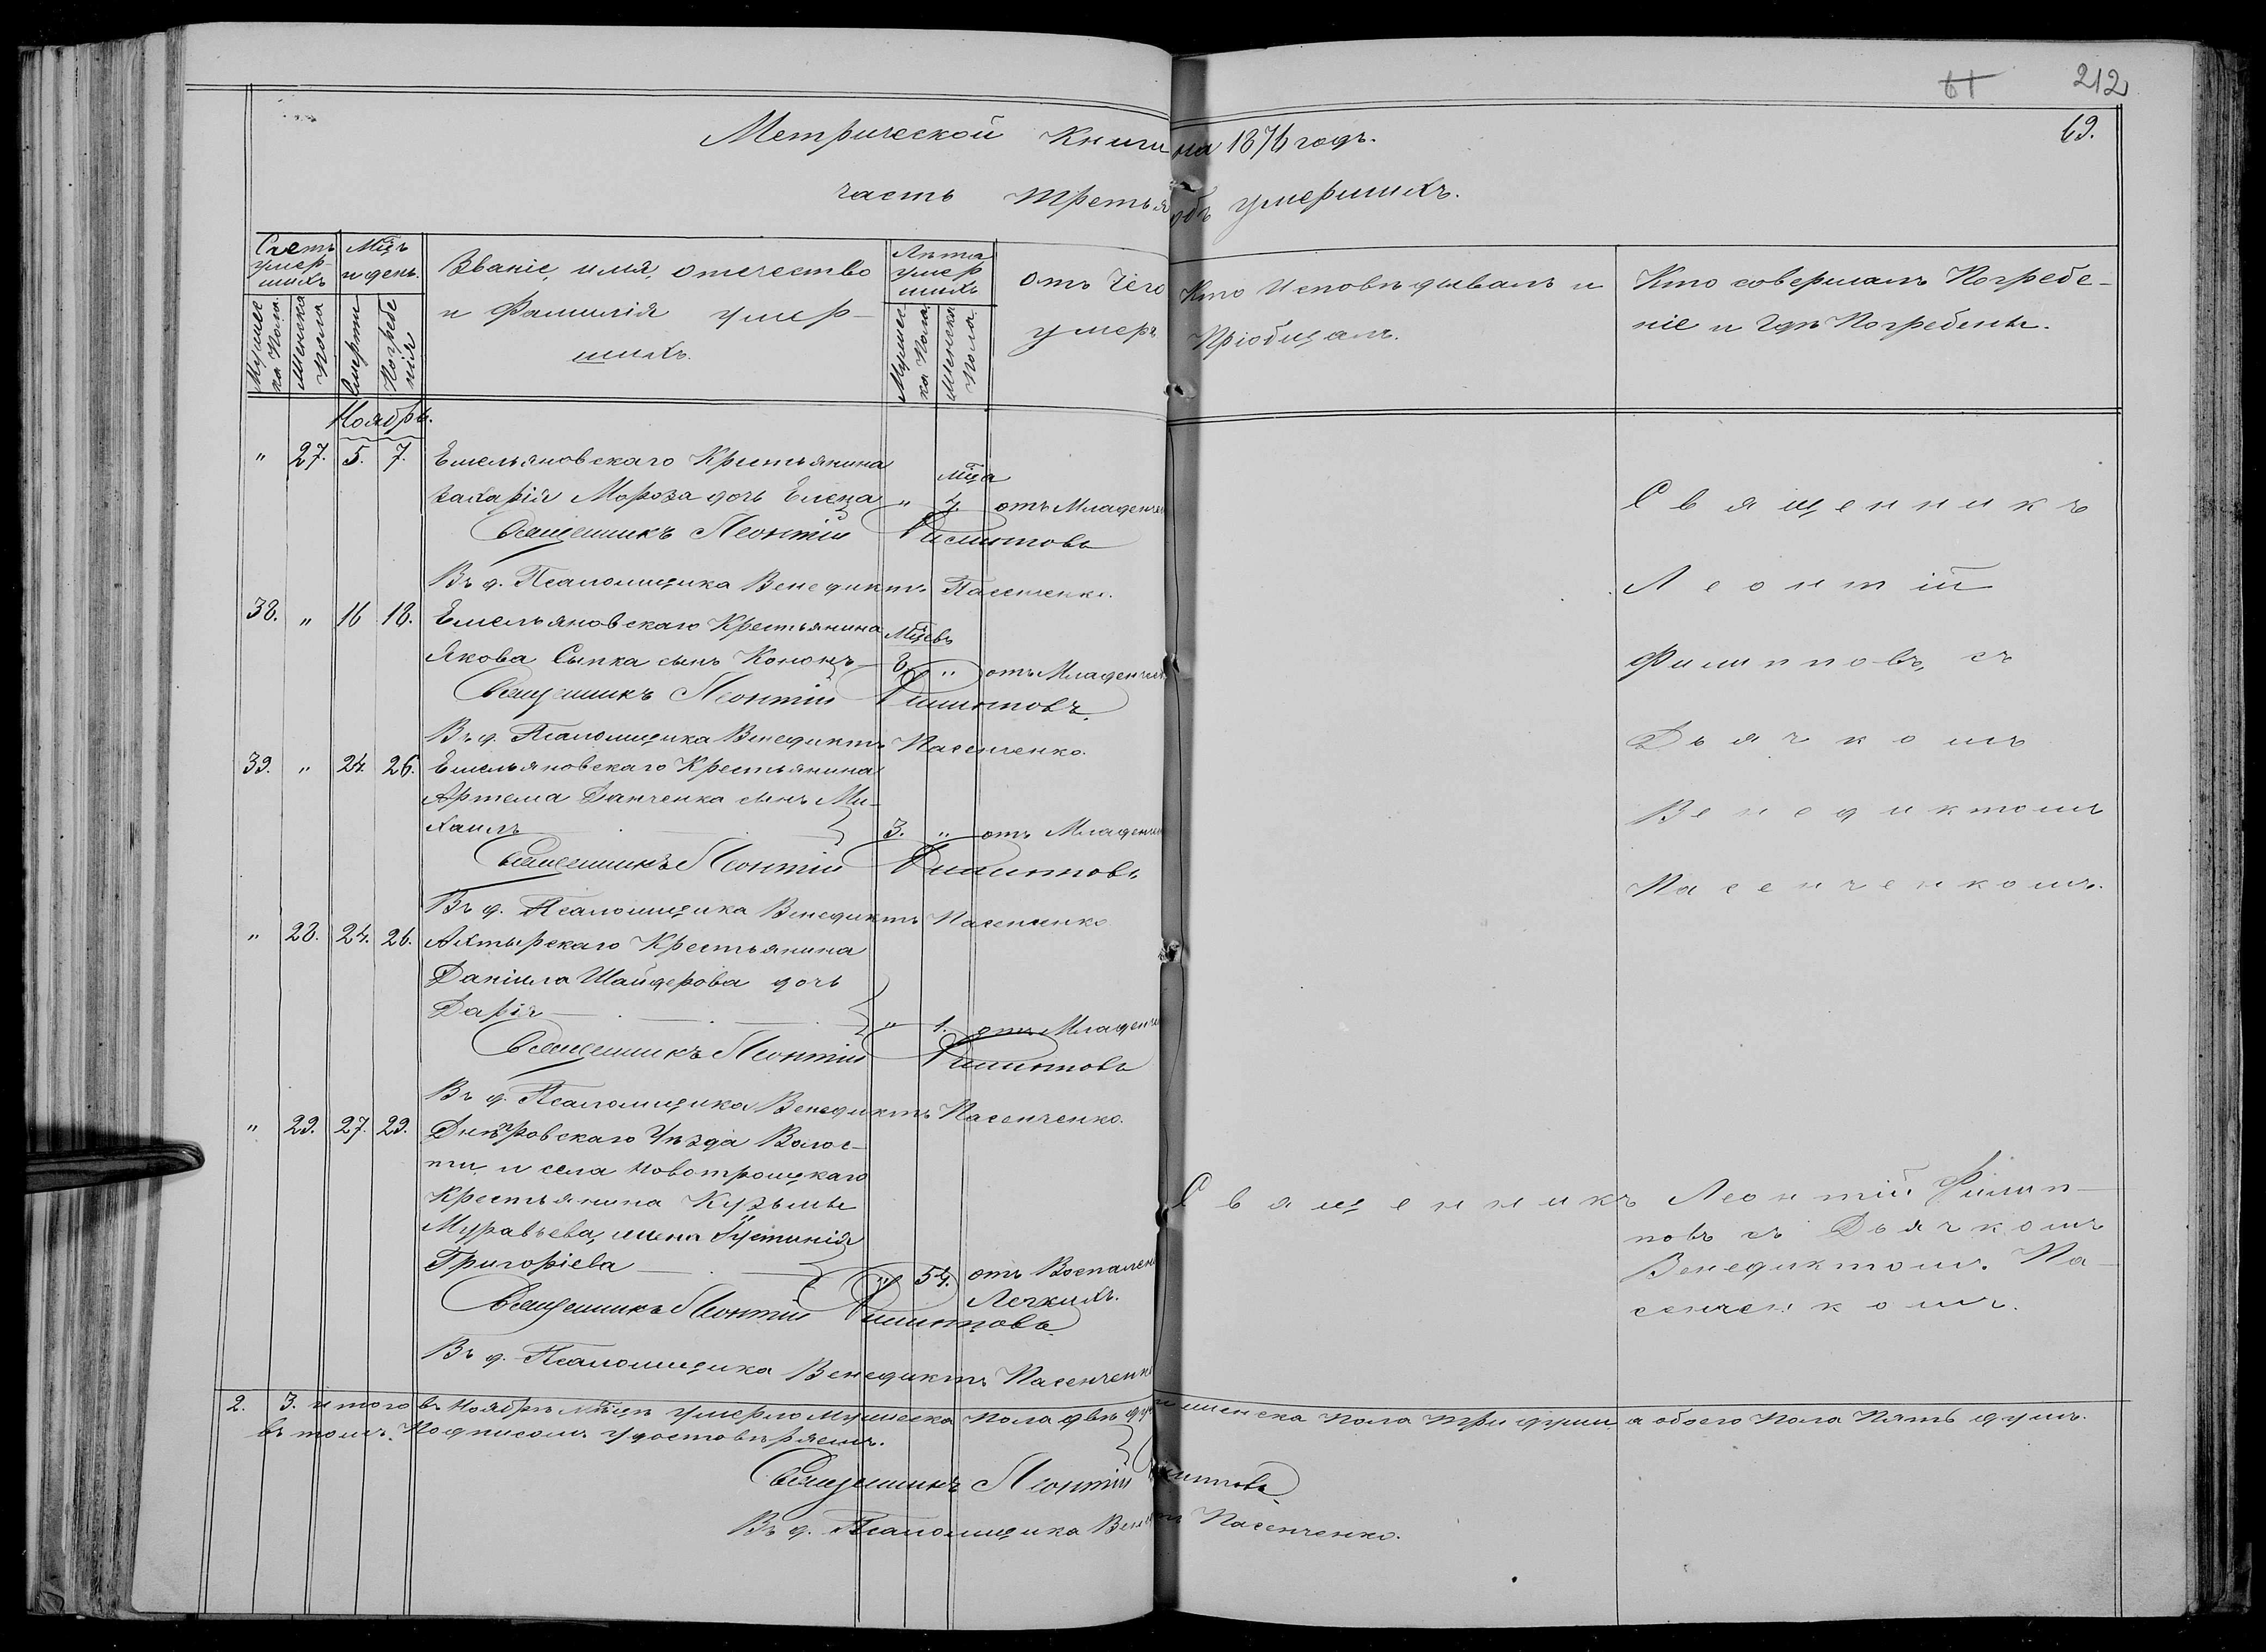 212
61
69.
Метрической Книги на 1876 годъ.
часть третья объ умершихъ.
Счетъ умер-шихъ
Мужес-ка Пола.
Женска Пола
Мц̃ъ и день.
Смерти
Погребе-нія
Званіе, имя, отечество
и Фамилія умер-
шихъ.
Лѣта умер шихъ
Мужес-ка Пола
Женска Пола.
отъ Чего
умеръ
Кто Исповѣдывалъ и
Пріобщалъ.
Кто совершалъ Погребе-
ніе и Гдѣ Погребены.
Ноябрь.
" 27. 5. 7. Емельяновскаго Крестьянина
мц̃а
Захарія Мороза дочь Елена " 4. отъ Младенчес
Священникъ Леонтій Филипповъ
Въ д. Псаломщика Венедиктъ Пасенченко.
38. " 16 18. Емельяновскаго Крестьянина Мц̃евъ
Якова Сыпка сынъ Кононъ 8. " отъ Младенчес
Священникъ Леонтій Филипповъ.
Въ д. Псаломщика Венедиктъ Пасенченко.
39. " 24. 26. Емельяновскаго Крестьянина
Артема Данченка сынъ Ми-
хаилъ 3. " отъ Младенчес
Священникъ Леонтій Филипповъ
Въ д. Псаломщика Венедиктъ Пасенченко
" 28. 24. 26. Ахтырскаго Крестьянина
Даніила Шайдерова дочь
Дарія " 1. отъ Младенчес
Священникъ Леонтій Филипповъ
Въ д. Псаломщика Венедиктъ Пасенченко.
Священникъ
Леонтій
Филипповъ, съ
Дьячкомъ
Венедиктомъ
Пасенченкомъ.
" 29. 27. 29. Днѣпровскаго Уѣзда Волос-
ти и села Новотроицкаго
Крестьянина Кузьмы
Муравьева, жена Іустинія
Григоріева " 54. отъ Воспален
Легкихъ.
Священникъ Леонтій Филипповъ
Въ д. Псаломщика Венедиктъ Пасенченко
Священникъ Леонтій Филип-
повъ съ Дьячкомъ
Венедиктомъ Па-
сенченкомъ.
2. 3. итого въ Ноябрѣ мц̃ѣ умерло мужеска пола двѣ ду и женска пола три души, а обоего пола Пять душъ.
въ томъ Подписомъ удостовѣряемъ.
Священникъ Леонтій Филипповъ
Въ д. Псаломщика Венедиктъ Пасенченко.